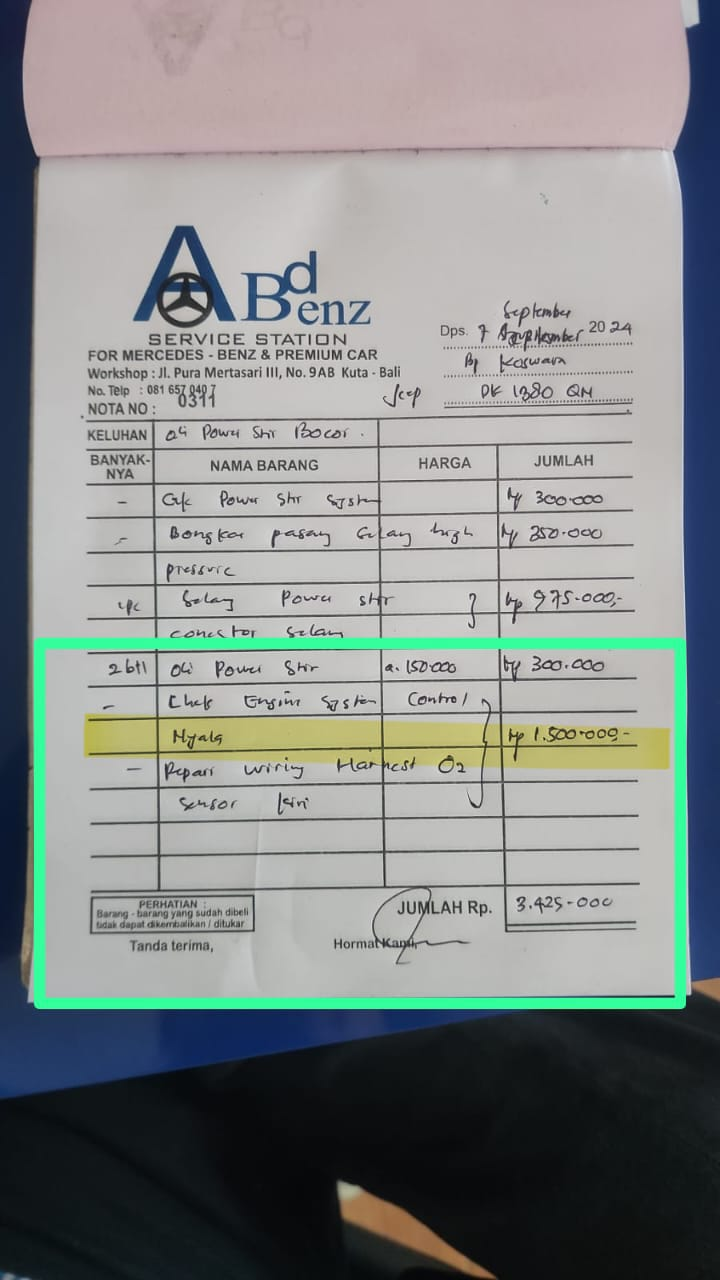 Abd Benz
SERVICE STATION
FOR MERCEDES - BENZ & PREMIUM CAR
Workshop : Jl. Pura Mertasari III, No. 9AB Kuta - Bali
No. Telp : 081 657 040 7
NOTA NO : 0311
September
Dps. 7 2024
Bp Koswara
Jeep DK 1380 QN
KELUHAN Oli Power Stir Bocor.
BANYAK-NYA NAMA BARANG HARGA JUMLAH
- Cek Power Stir System Rp 300.000
- Bongkar pasang Selang high Rp 350.000
pressure
1pc Selang Power stir Rp 975.000,-
conector selang
2 btl Oli Power Stir a. 150.000 Rp 300.000
- Chek Engine System Control
Nyala Rp 1.500.000,-
- Repair wiring Harnest O2
Sensor kiri
PERHATIAN :
Barang - barang yang sudah dibeli
tidak dapat dikembalikan / ditukar
JUMLAH Rp. 3.425.000
Tanda terima, Hormat Kami,